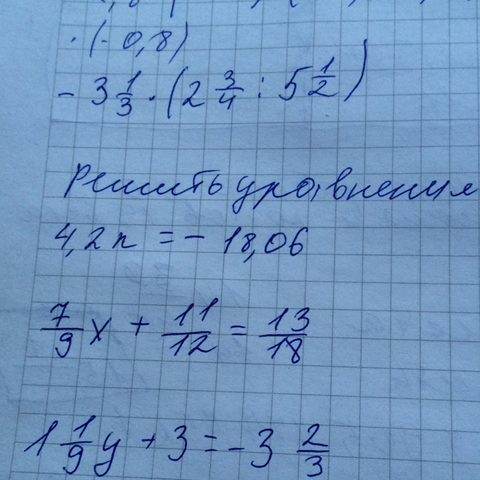 · (- 0,8)
- 3 1/3 · (2 3/4 : 5 1/2)
решить уравнения
4,2 n = - 18,06
7/9 x + 11/12 = 13/18
1 1/9 y + 3 = - 3 2/3